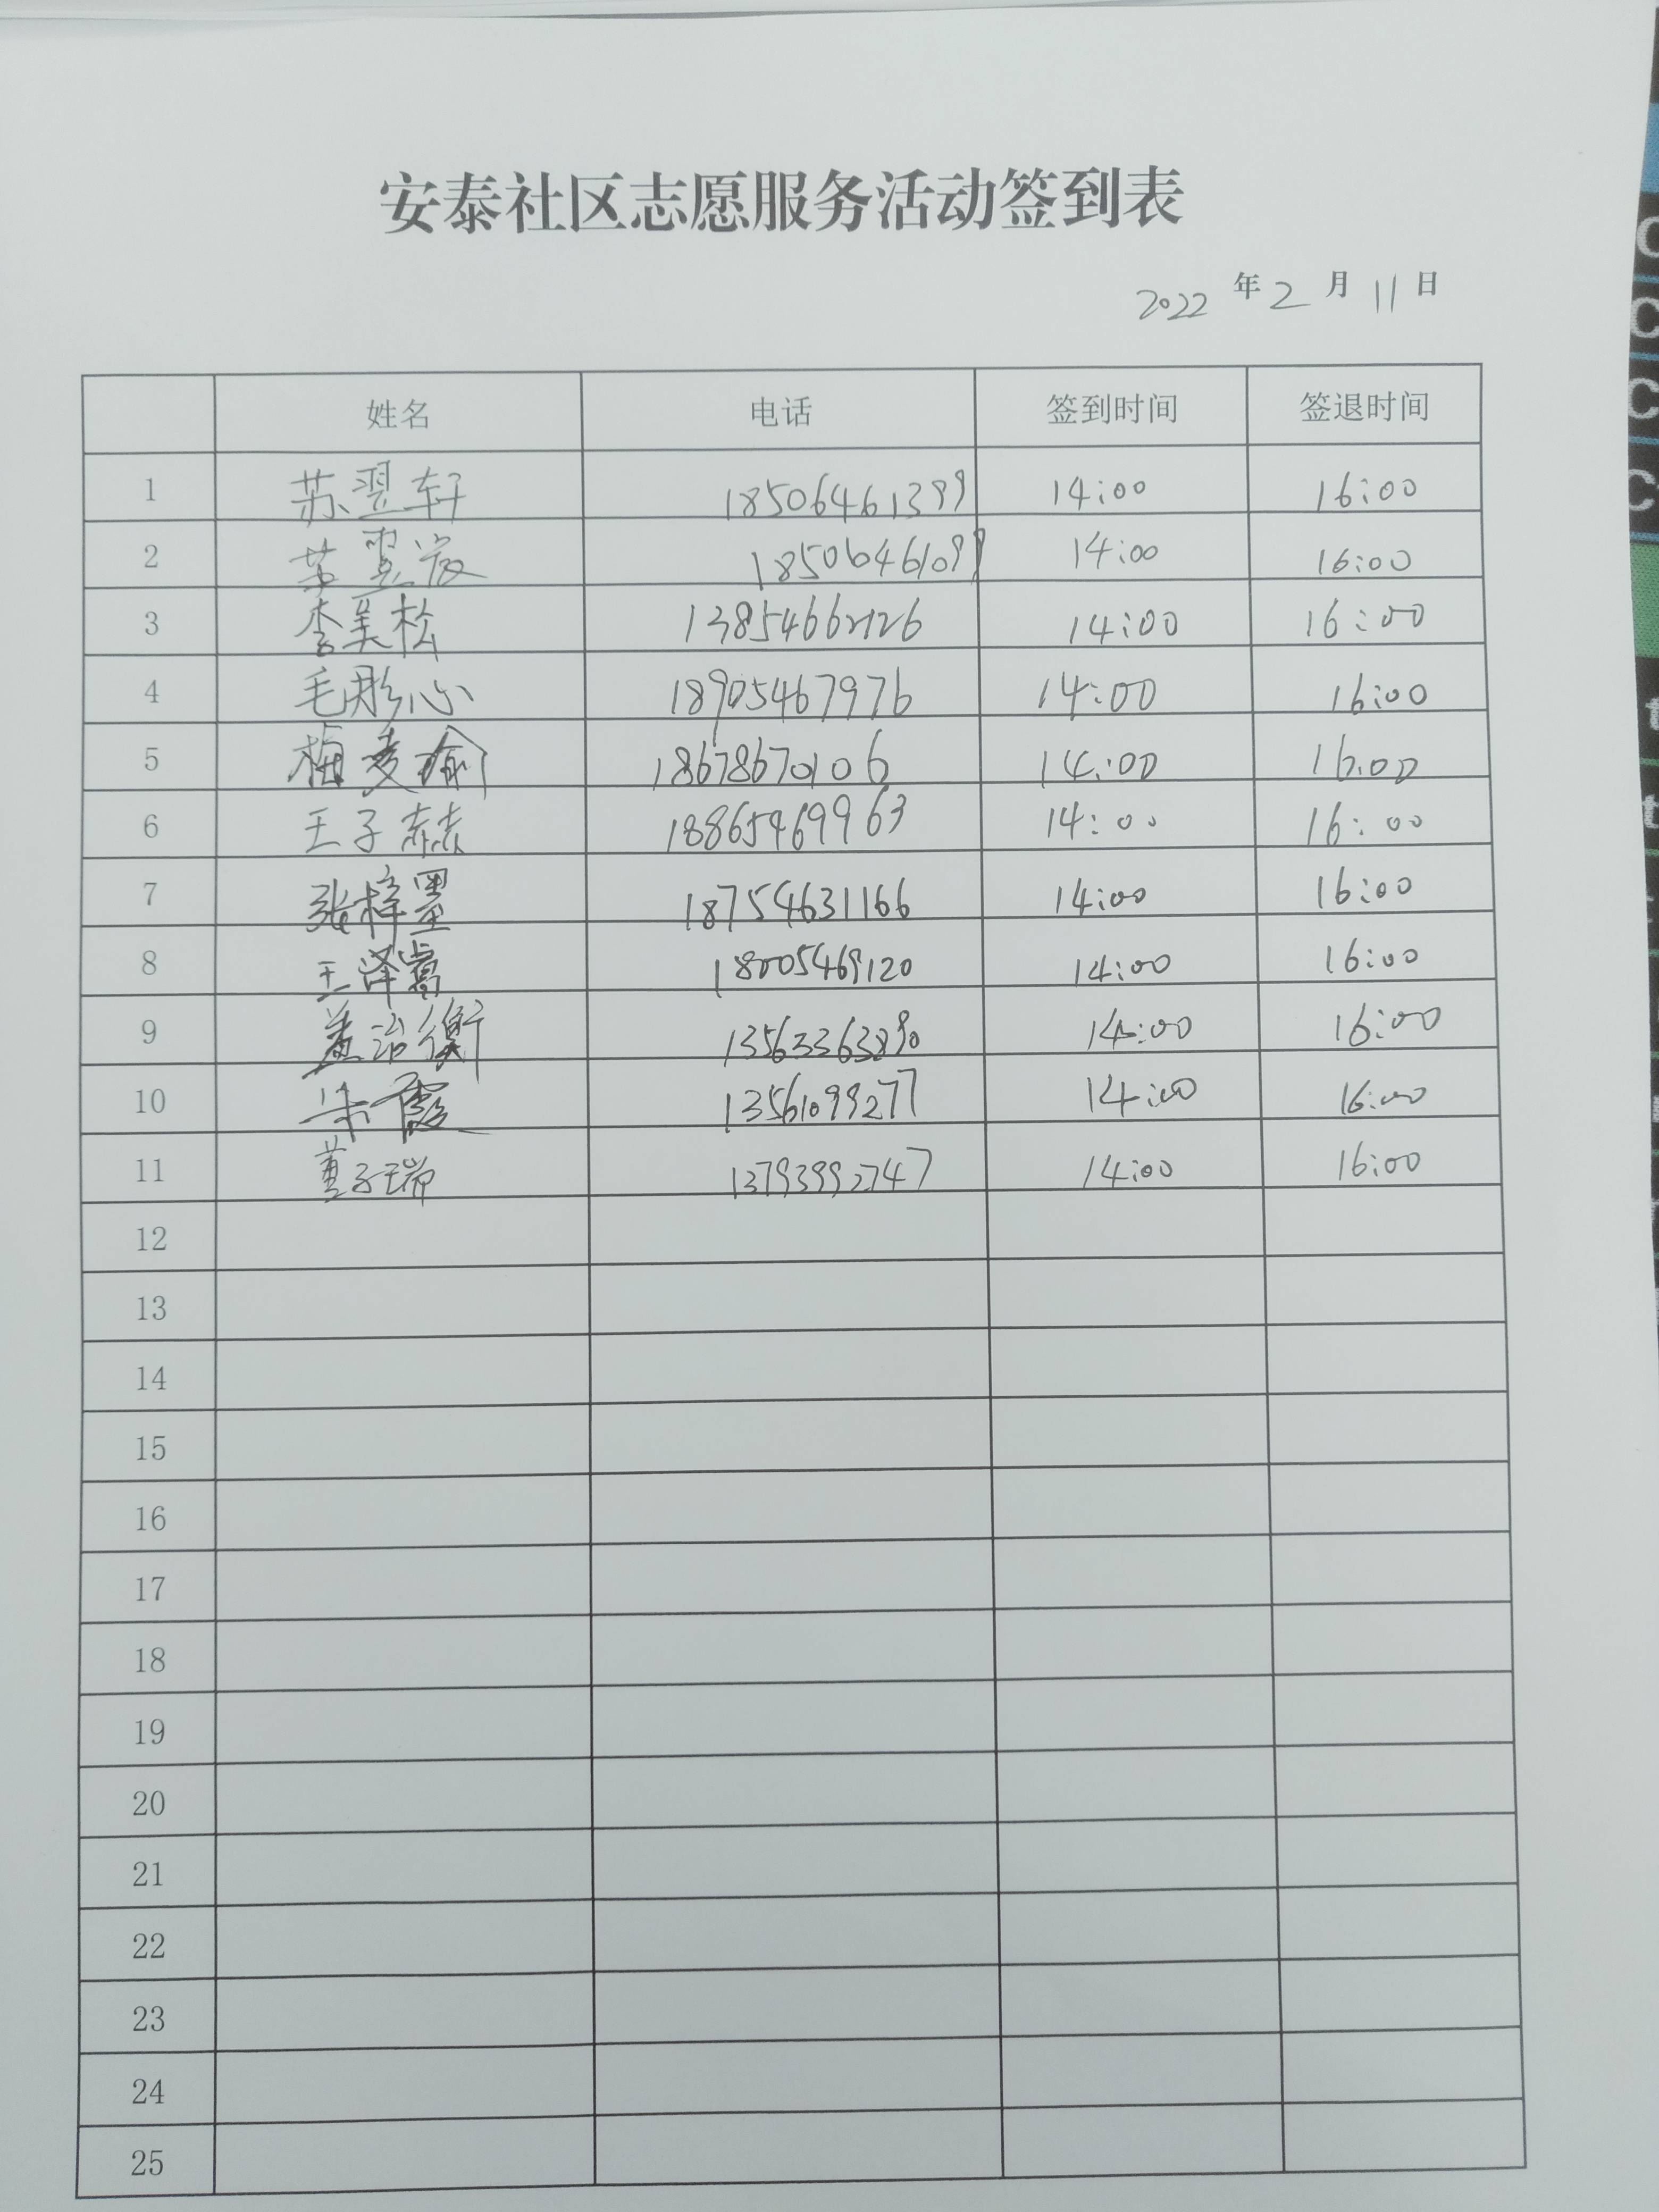 安泰社区志愿服务活动签到表
2022 年 2 月 11 日
姓名 电话 签到时间 签退时间
1 苏翌轩 18506461399 14:00 16:00
2 18506461099 14:00 16:00
3 李美松 14:00 16:00
4 毛彤心 18905467976 14:00 16:00
5 梅麦瑜 18678670106 14:00 16:00
6 王子赫 18865469963 14:00 16:00
7 张梓墨 18754631166 14:00 16:00
8 王泽睿 18005469120 14:00 16:00
9 14:00 16:00
10 朱霞 13561099277 14:00 16:00
11 董子瑞 13793992747 14:00 16:00
12
13
14
15
16
17
18
19
20
21
22
23
24
25